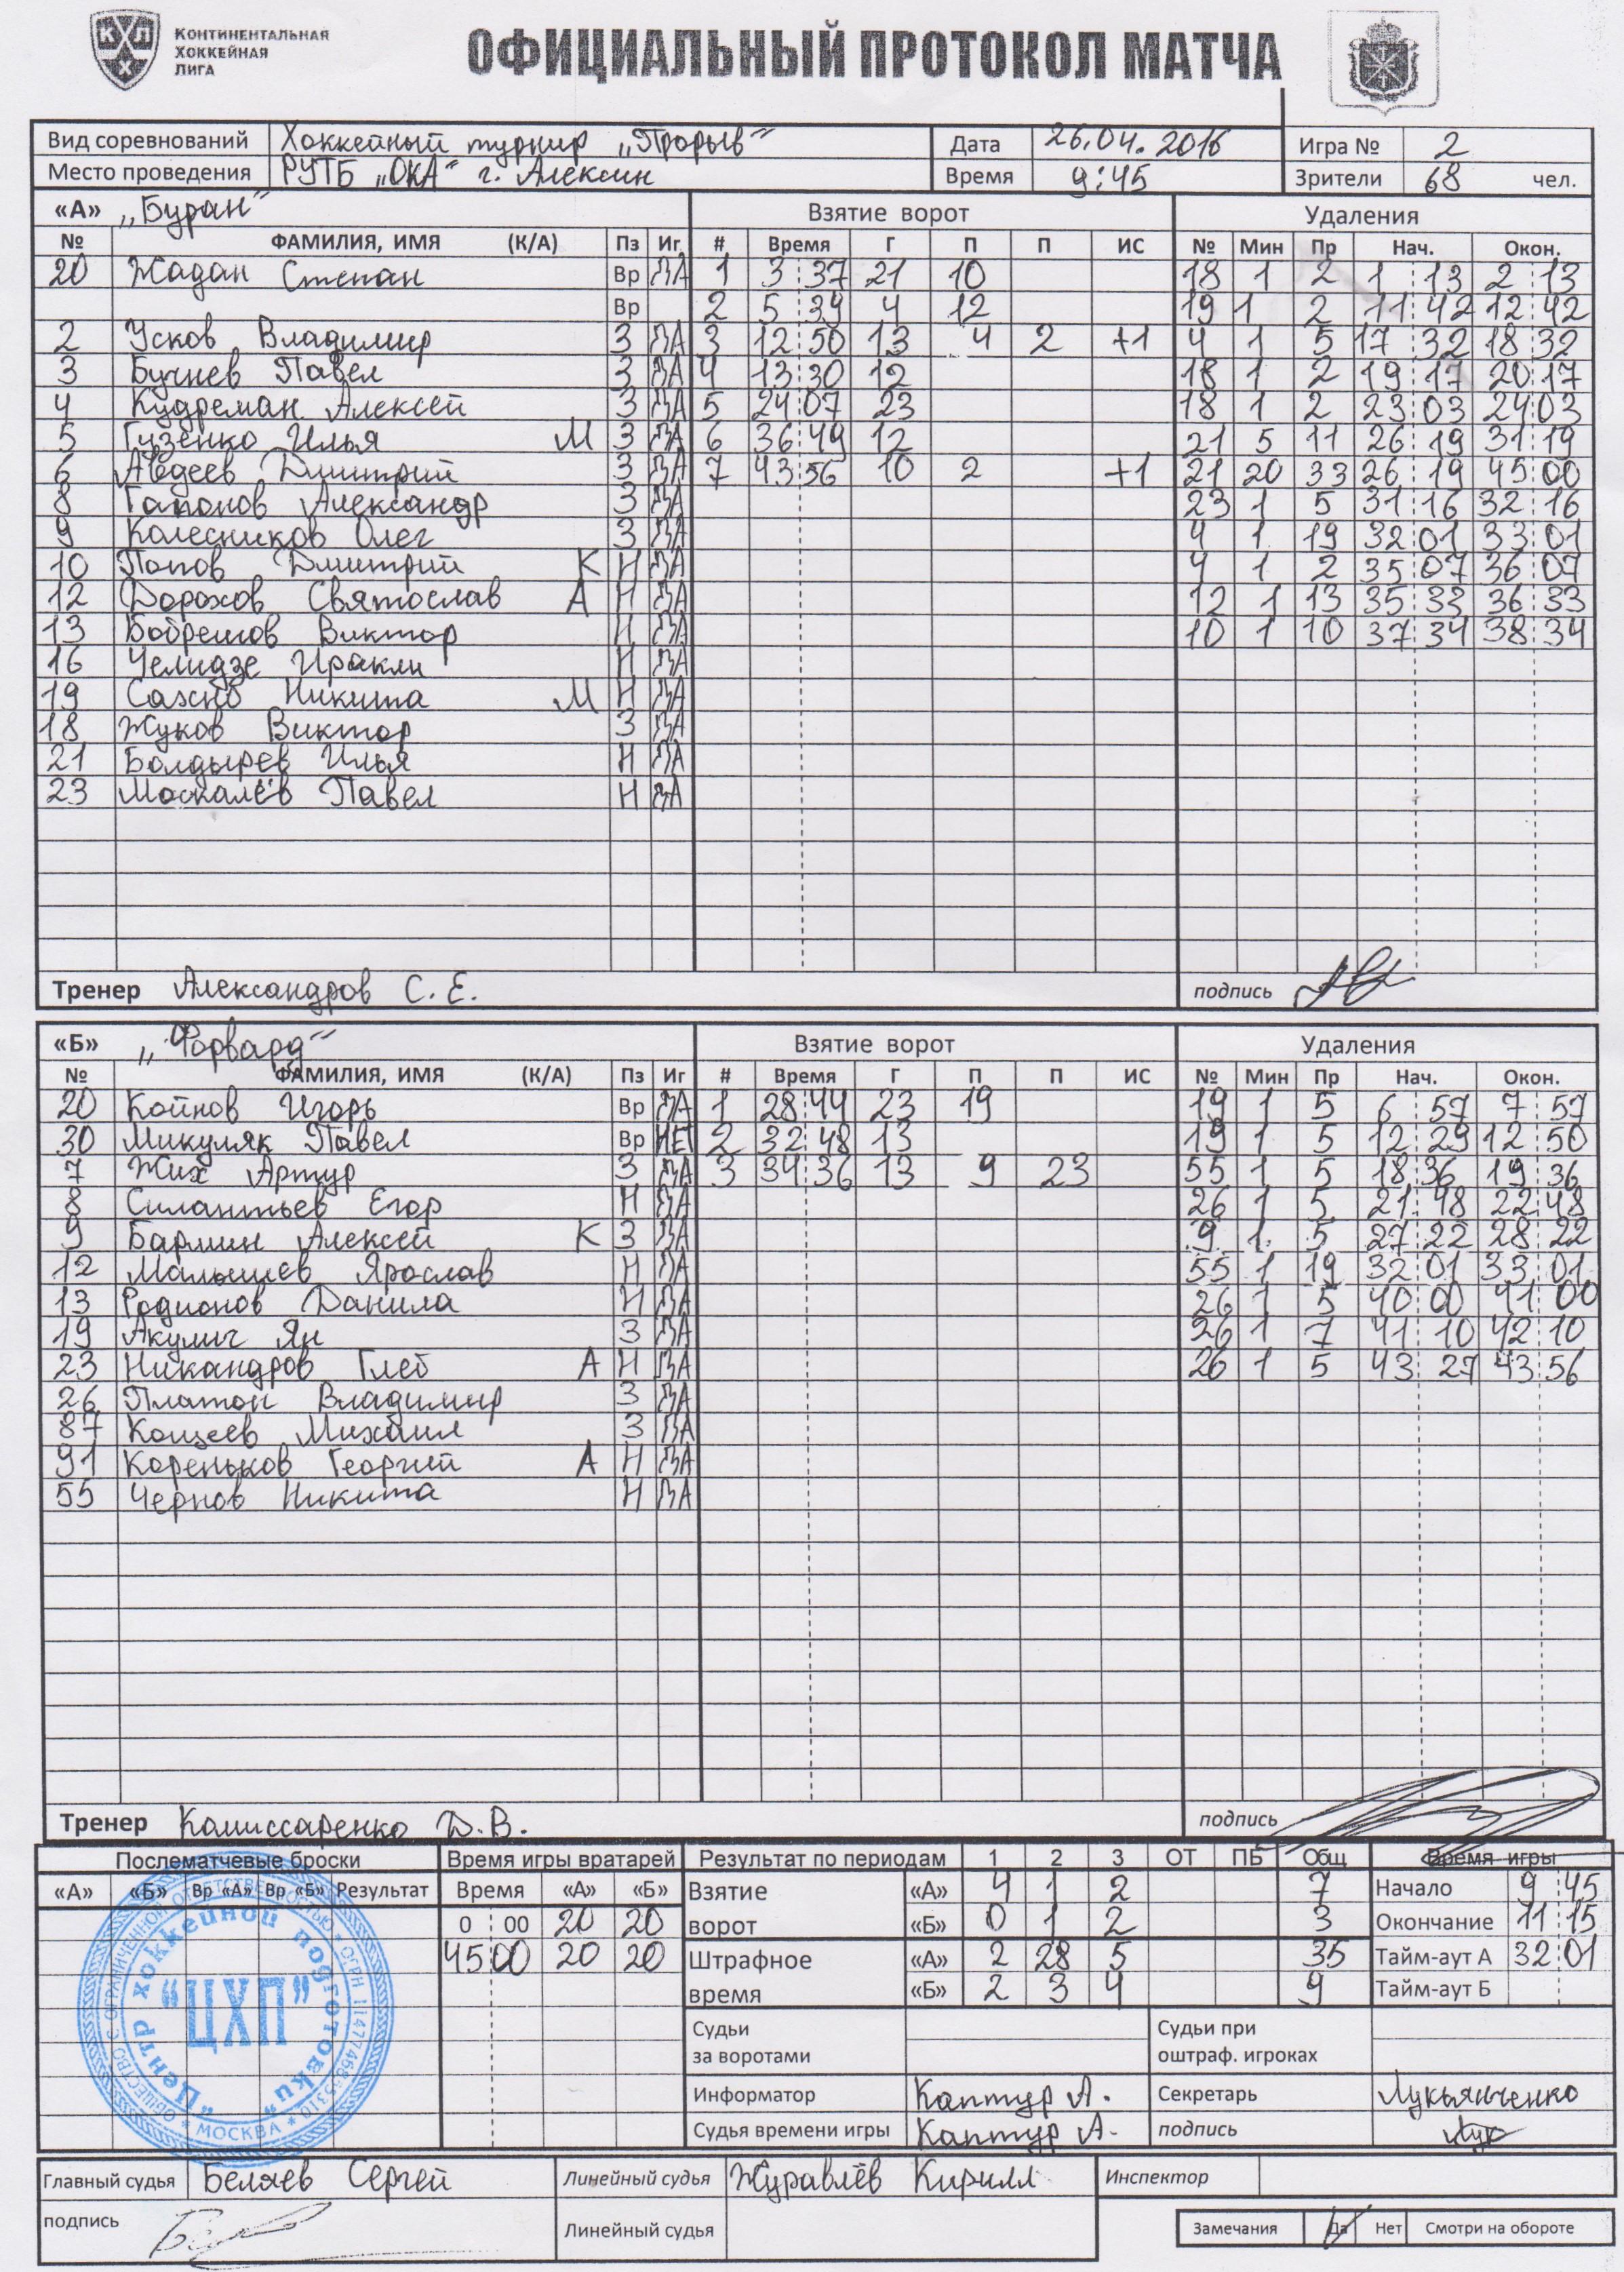 КОНТИНЕНТАЛЬНАЯ
ХОККЕЙНАЯ
ЛИГА
ОФИЦИАЛЬНЫЙ ПРОТОКОЛ МАТЧА
Вид соревнований Хоккейный турнир „Прорыв" Дата 26.04.2016 Игра № 2
Место проведения РУТБ „ОКА" г. Алексин Время 9:45 Зрители 68 чел.
«А» „Буран" Взятие ворот Удаления
№ ФАМИЛИЯ, ИМЯ (К/А) Пз Иг # Время Г П П ИС № Мин Пр Нач. Окон.
20 Жадан Степан Вр ДА 1 3 37 21 10 18 1 2 1 13 2 13
Вр 2 5 39 4 12 19 1 2 11 42 12 42
2 Усков Владимир З ДА 3 12 50 13 4 2 +1 4 1 5 17 32 18 32
3 Бучнев Павел З ДА 4 13 30 12 18 1 2 19 17 20 17
4 Кудреман Алексей З ДА 5 24 07 23 18 1 2 23 03 24 03
5 Гузенко Илья М З ДА 6 36 49 12 21 5 11 26 19 31 19
6 Авдеев Дмитрий З ДА 7 43 56 10 2 +1 21 20 33 26 19 45 00
8 Гапонов Александр З ДА 23 1 5 31 16 32 16
9 Колесников Олег З ДА 4 1 19 32 01 33 01
10 Попов Дмитрий К Н ДА 4 1 2 35 07 36 07
12 Дорохов Святослав А Н ДА 12 1 13 35 33 36 33
13 Бобрешов Виктор Н ДА 10 1 10 37 34 38 34
16 Челидзе Иракли Н ДА
19 Сахно Никита М Н ДА
18 Жуков Виктор З ДА
21 Болдырев Илья Н ДА
23 Москалёв Павел Н ДА
Тренер Александров С. Е. подпись
«Б» „Форвард" Взятие ворот Удаления
№ ФАМИЛИЯ, ИМЯ (К/А) Пз Иг # Время Г П П ИС № Мин Пр Нач. Окон.
20 Койнов Игорь Вр ДА 1 28 44 23 19 19 1 5 6 57 7 57
30 Микуляк Павел Вр НЕТ 2 32 48 13 19 1 5 12 29 12 50
7 Жих Артур З ДА 3 34 36 13 9 23 55 1 5 18 36 19 36
8 Силантьев Егор Н ДА 26 1 5 21 48 22 48
9 Бармин Алексей К З ДА 9 1 5 27 22 28 22
12 Малышев Ярослав Н ДА 55 1 19 32 01 33 01
13 Родионов Данила Н ДА 26 1 5 40 00 41 00
19 Акулич Ян З ДА 26 1 7 41 10 42 10
23 Никандров Глеб А Н ДА 26 1 5 43 27 43 56
26 Платон Владимир З ДА
87 Кощеев Михаил З ДА
91 Кореньков Георгий А Н ДА
55 Чернов Никита Н ДА
Тренер Комиссаренко Д.В. подпись
Послематчевые броски Время игры вратарей Результат по периодам 1 2 3 ОТ ПБ Общ Время игры
«А» «Б» Вр «А» Вр «Б» Результат Время «А» «Б» Взятие «А» 4 1 2 7 Начало 9 45
0 00 20 20 ворот «Б» 0 1 2 3 Окончание 11 15
45 00 20 20 Штрафное «А» 2 28 5 35 Тайм-аут А 32 01
время «Б» 2 3 4 9 Тайм-аут Б
Судьи Судьи при
за воротами оштраф. игроках
Информатор Каптур А. Секретарь Лукьянченко
Судья времени игры Каптур А. подпись
"Центр хоккейной подготовки"
"ЦХП"
* МОСКВА *
Главный судья Беляев Сергей Линейный судья Журавлёв Кирилл Инспектор
подпись Линейный судья Замечания Да Нет Смотри на обороте